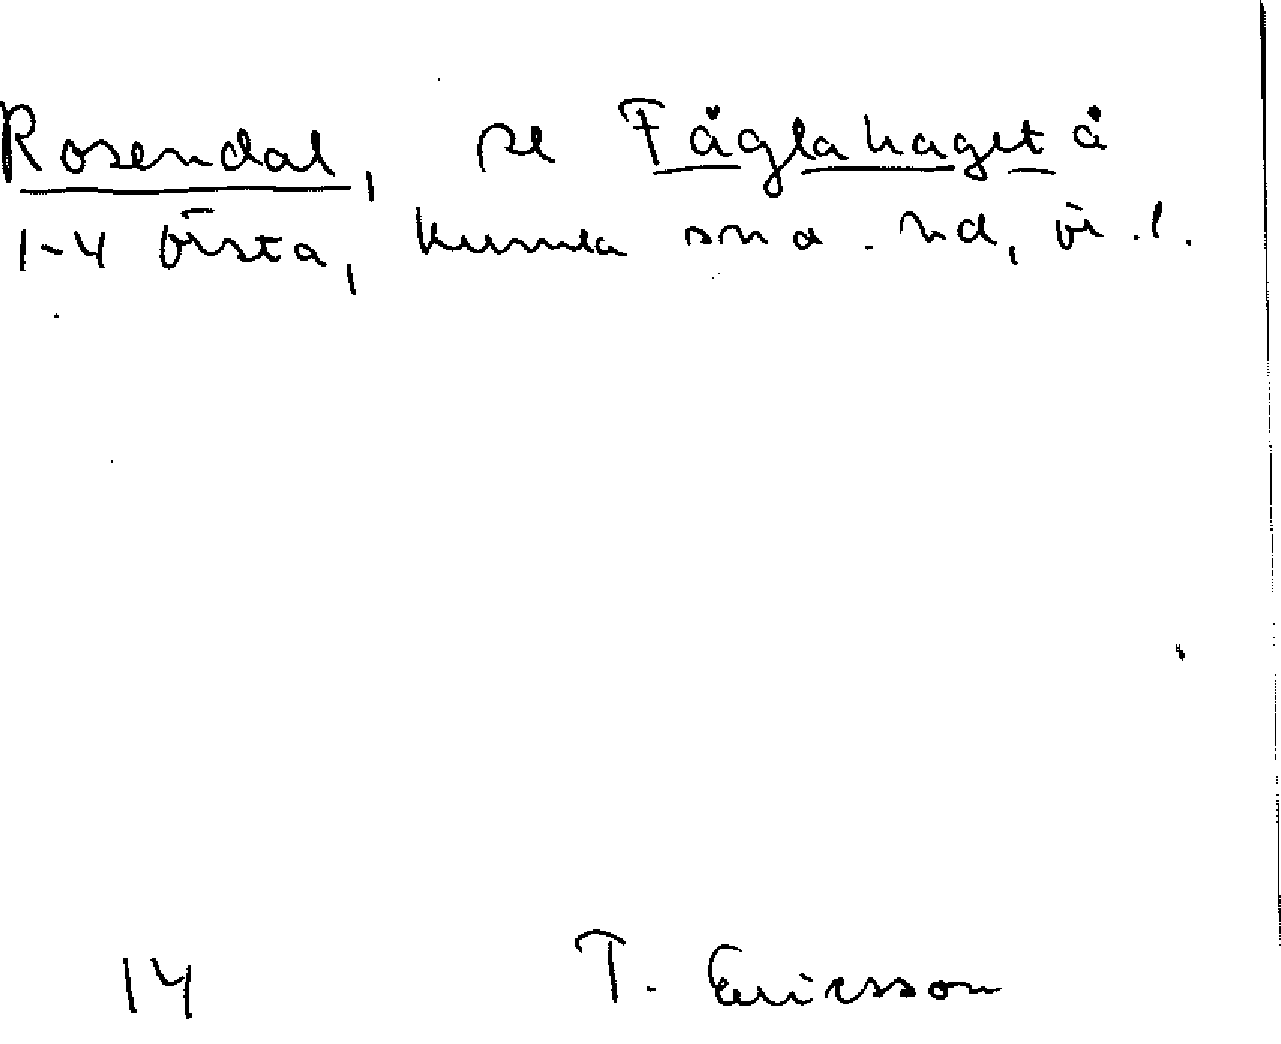 Rosendal, se Fåglahaget å
1-4 Örsta, Kumla sn o. hd, ör. l.
14 T. Ericsson